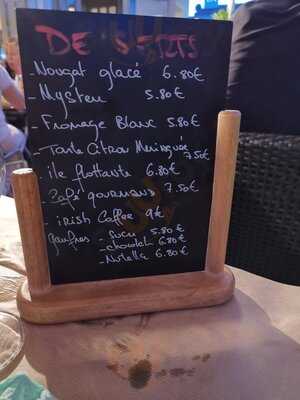 DESSERTS
- Nougat glacé 6.80€
- Mysteu 5.80€
- Fromage Blanc 5.80€
- Tarte Citron Meringuée 7.50€
- île flottante 6.80€
- Café gourmand 7.50€
- irish Coffee 9€
gaufres - Sucre 5.80€
- chocolat 6.80€
- Nutella 6.80€